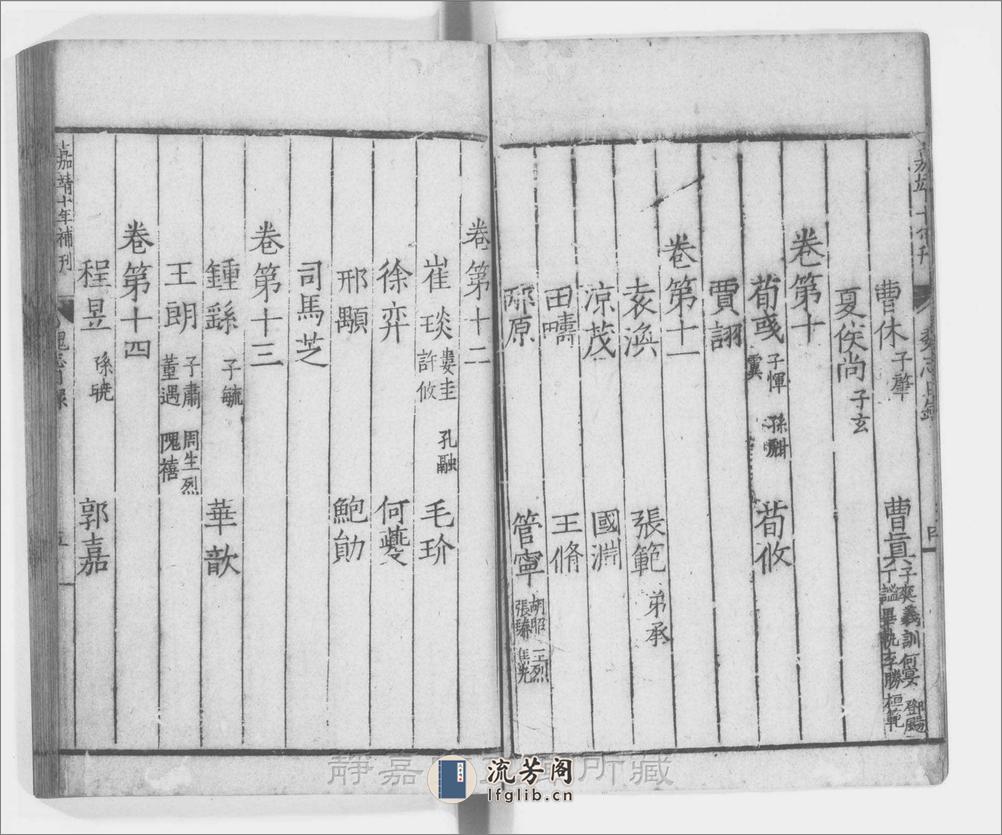 曹休 子肇 曹眞 子爽 羲 訓 何晏 鄧颺 丁謐 畢軌 李勝 桓範
夏侯尚 子玄
卷第十
荀彧 子惲 孫甝 霬 荀攸
賈詡
卷第十一
袁渙 張範 弟承
涼茂 國淵
田疇 王脩
邴原 管寧 胡昭 王烈 張臶 焦先
卷第十二
崔琰 婁圭 許攸 孔融 毛玠
徐弈 何夔
邢顒 鮑勛
司馬芝
卷第十三
鍾繇 子毓 華歆
王朗 子肅 董遇 周生烈 隗禧
卷第十四
程昱 孫曉 郭嘉
嘉靖十年補刊
魏志目錄
五
靜嘉 所藏
流芳阁
lfglib.cn